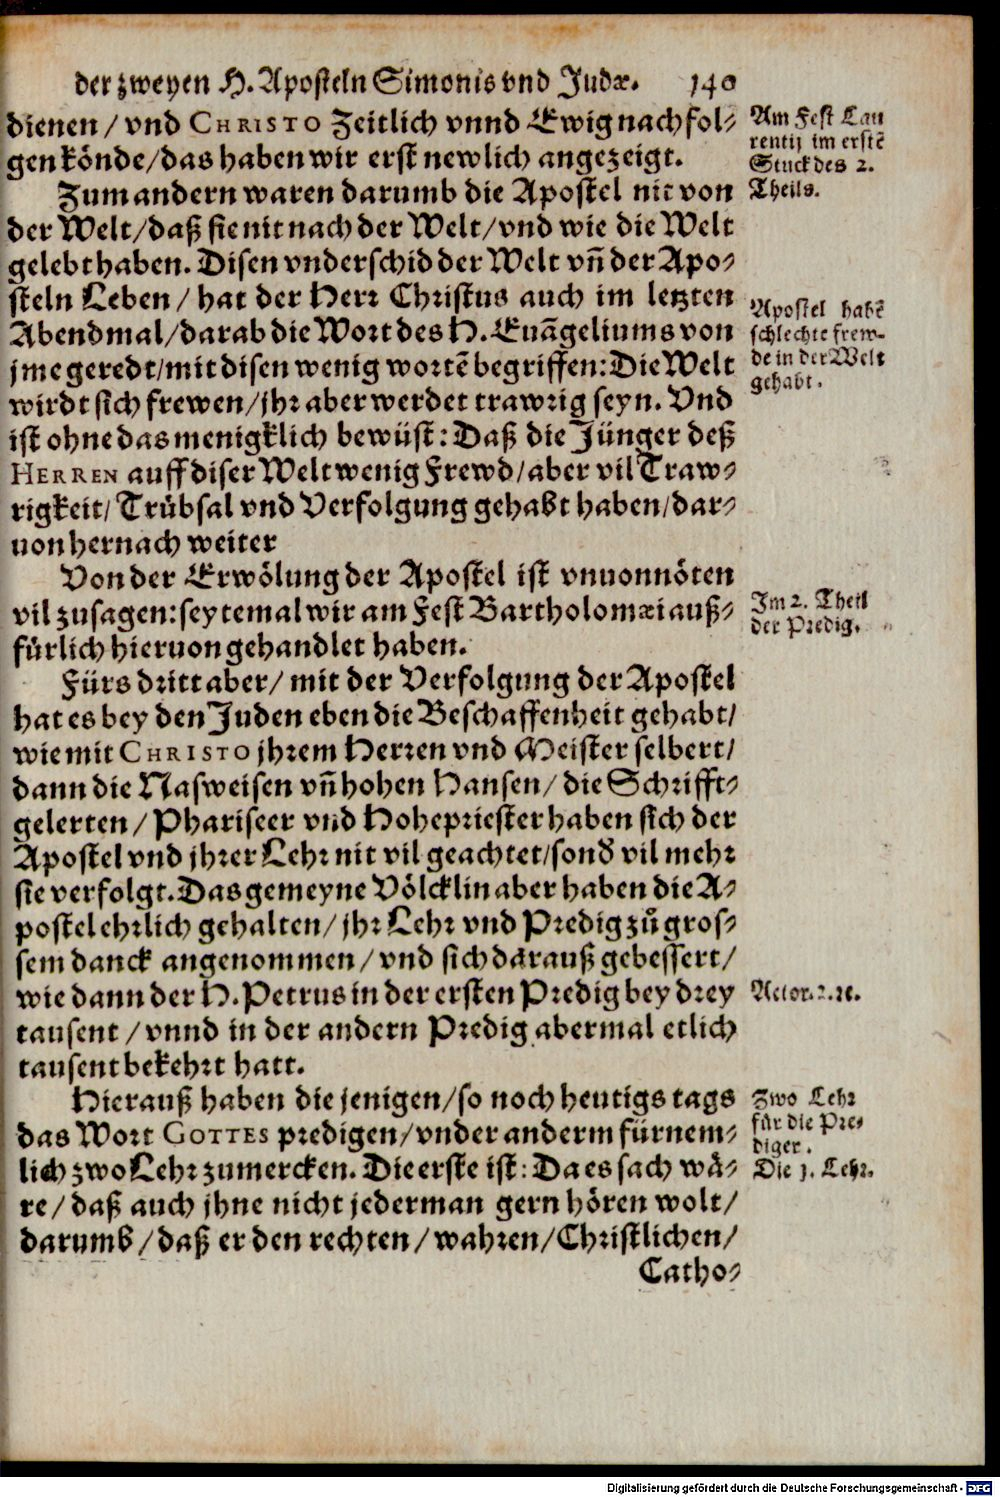 der zweyen H. Aposteln Simonis vnd Judæ. 140
dienen / vnd CHRISTO Zeitlich vnnd Ewig nachfol-
gen könde / das haben wir erst newlich angezeigt.
Am Fest Lau
rentij im erstē
Stuck des 2.
Theils.
Zum andern waren darumb die Apostel nit von
der Welt / daß sie nit nach der Welt / vnd wie die Welt
gelebt haben. Disen vnderschid der Welt vñ der Apo-
steln Leben / hat der Herr Christus auch im letzten
Abendmal / darab die Wort des H. Euāgeliums von
jme geredt / mit disen wenig wortē begriffen: Die Welt
wirdt sich frewen / jhr aber werdet trawrig seyn. Vnd
ist ohne das menigklich bewüst: Daß die Jünger deß
HERREN auff diser Welt wenig Frewd / aber vil Traw-
rigkeit / Trübsal vnd Verfolgung gehabt haben / dar-
uon hernach weiter
Apostel habē
schlechte frew-
de in der Welt
gehabt.
Von der Erwölung der Apostel ist vnuonnöten
vil zusagen: seytemal wir am Fest Bartholomæi auß-
fürlich hieruon gehandlet haben.
Im 2. Theil
der Predig.
Fürs dritt aber / mit der Verfolgung der Apostel
hat es bey den Juden eben die Beschaffenheit gehabt /
wie mit CHRISTO jhrem Herren vnd Meister selbert /
dann die Nasweisen vñ hohen Hansen / die Schrifft-
gelerten / Phariseer vnd Hohepriester haben sich der
Apostel vnd jhrer Lehr nit vil geachtet / sond' vil mehr
sie verfolgt. Das gemeyne Völcklin aber haben die A-
postel ehrlich gehalten / jhr Lehr vnd Predig zů gros-
sem danck angenommen / vnd sich darauß gebessert /
wie dann der H. Petrus in der ersten Predig bey drey
tausent / vnnd in der andern Predig abermal etlich
tausent bekehrt hatt.
Actor. 2. ꝛc.
Hierauß haben die jenigen / so noch heutigs tags
das Wort GOTTES predigen / vnder anderm fürnem-
lich zwo Lehr zumercken. Die erste ist: Da es sach wå-
re / daß auch jhne nicht jederman gern hören wolt /
darumb / daß er den rechten / wahren / Christlichen /
Catho-
Zwo Lehr
für die Pre-
diger.
Die 1. Lehr.
Digitalisierung gefördert durch die Deutsche Forschungsgemeinschaft - DFG